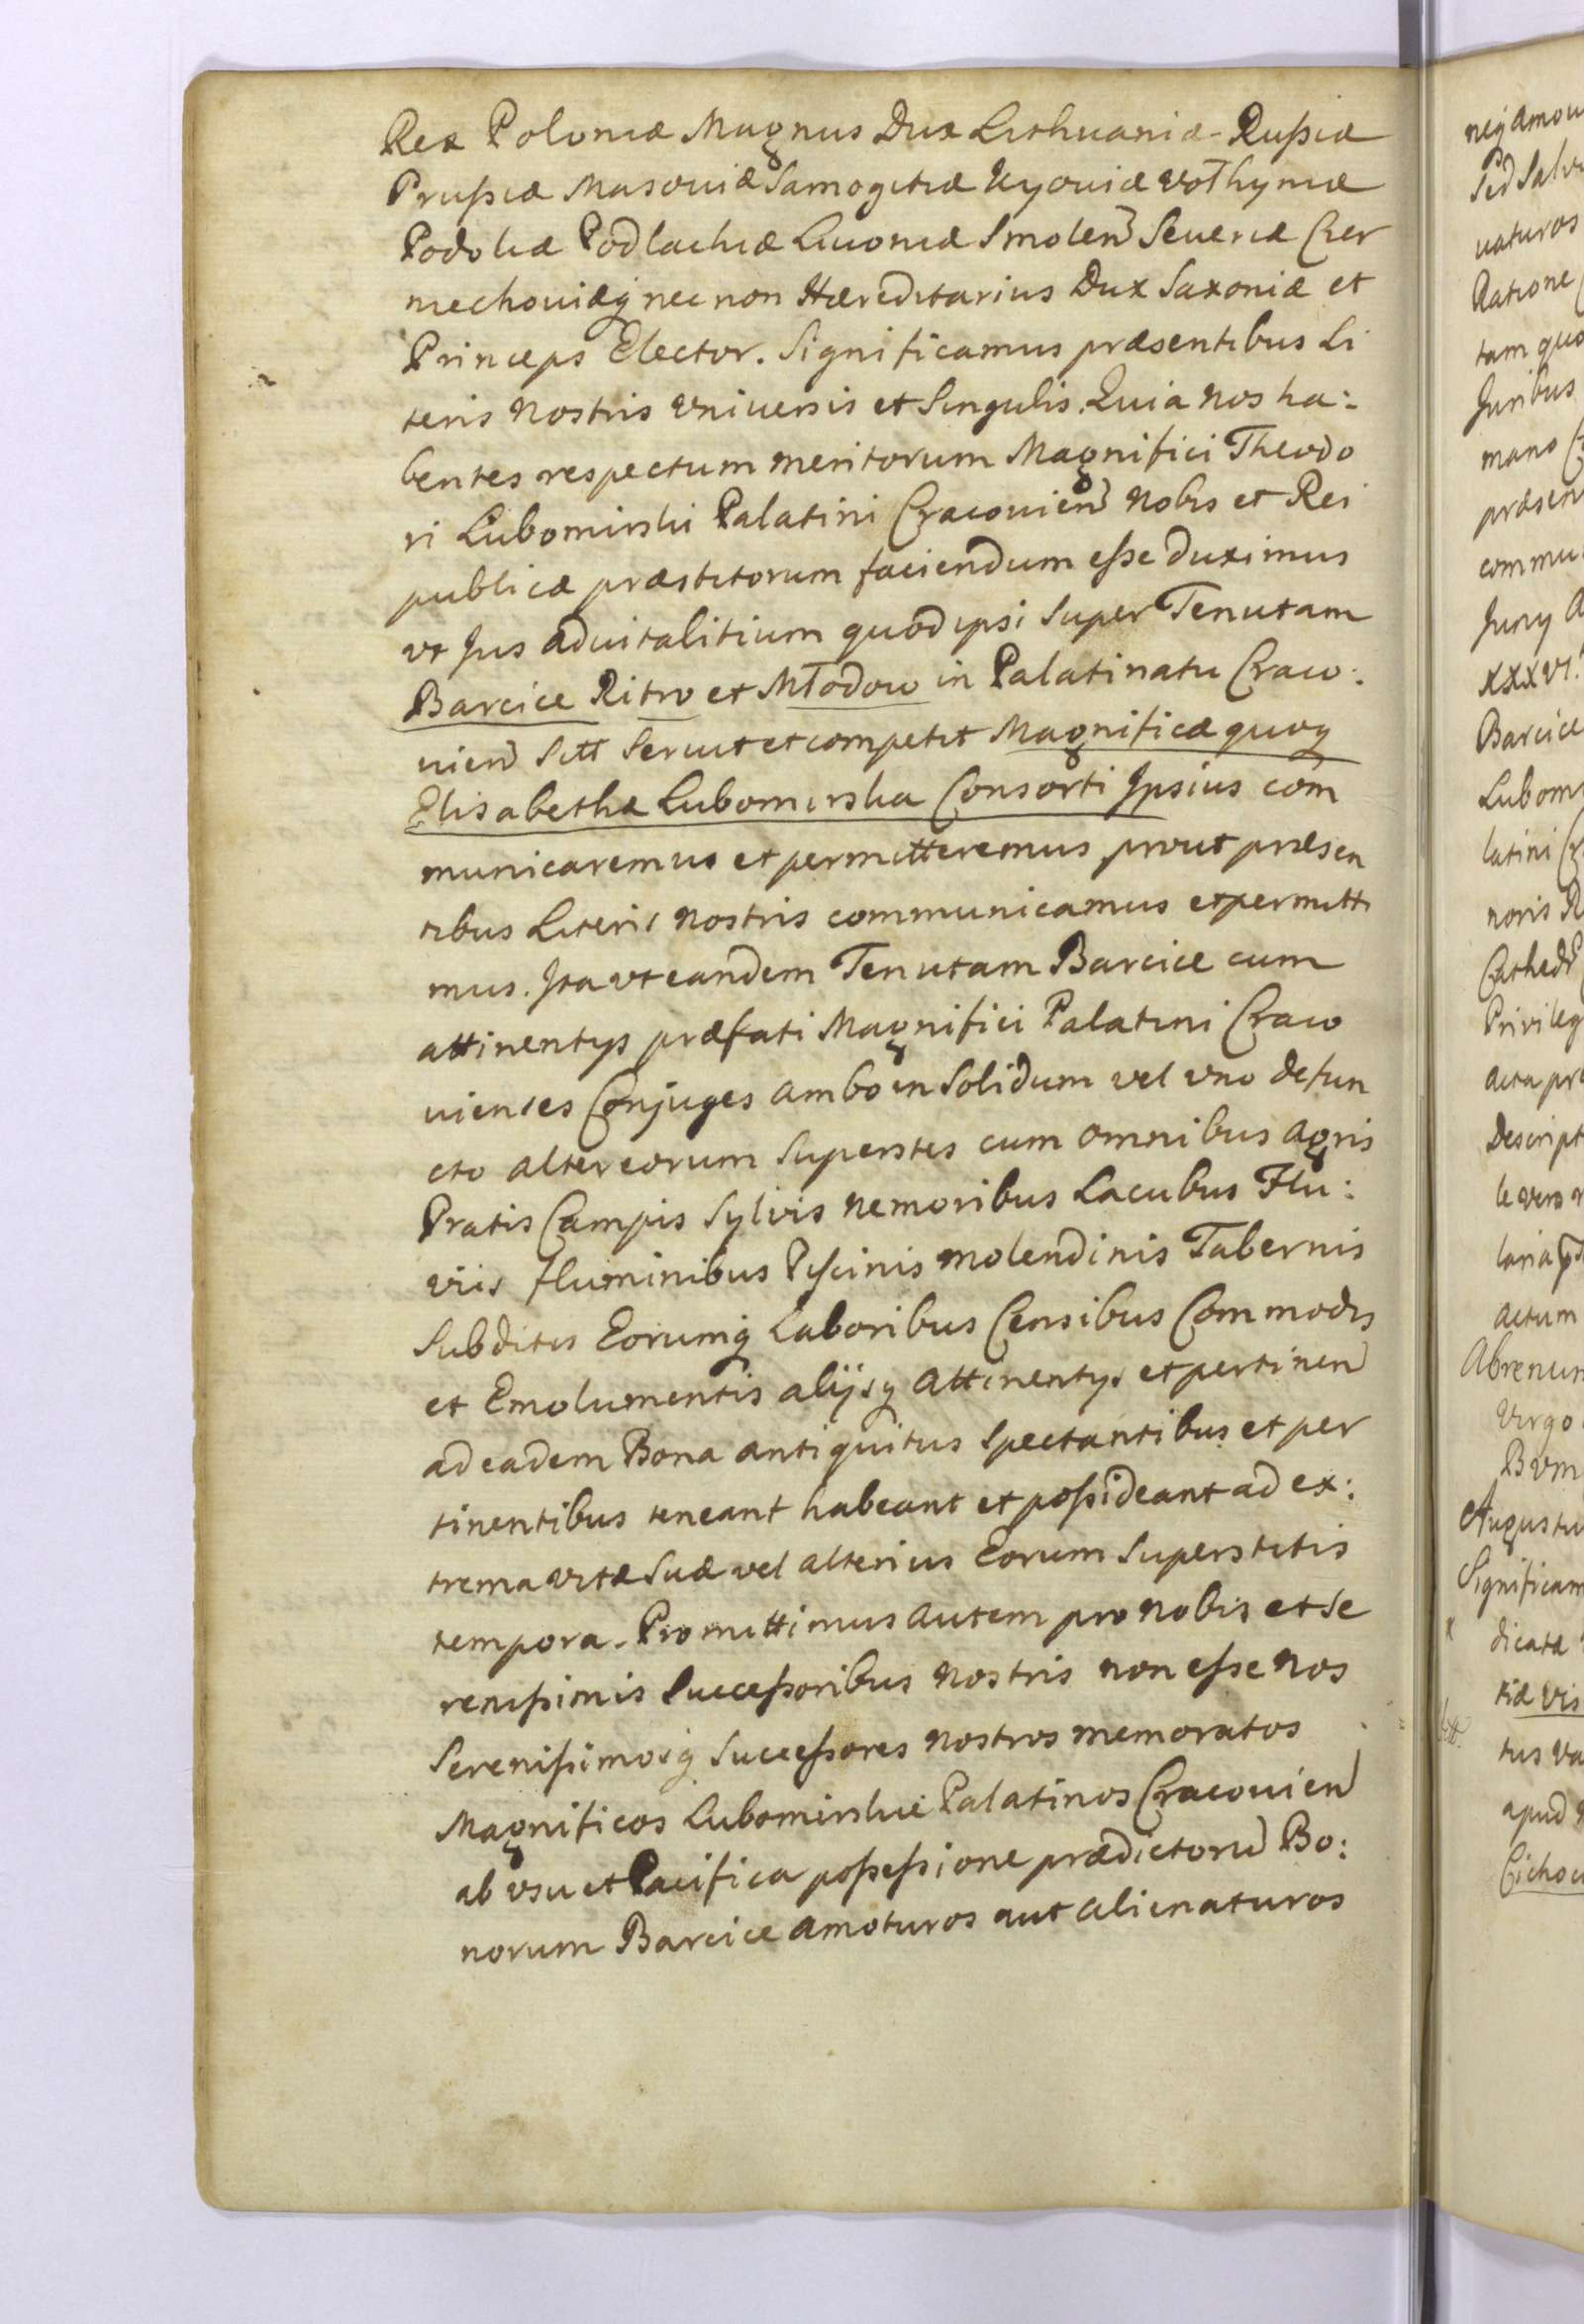 Rex Poloniæ Magnus Dux Lithuaniæ Rußiæ
Prußiæ Masouiæ Samogitiæ Kyouiæ Vołhyniæ
Podoliæ Podlachiæ Liuoniæ Smolen Seueriæ Czer
niechouiæq nec non Hæreditarius Dux Saxoniæ et
Princeps Elector. Significamus præsentibus Li
teris Nostris Vniuersis et Singulis. Quia Nos ha:
bentes respectum meritorum Magnifici Theodo
ri Lubomirski Palatini Cracouien Nobis et Rei
publicæ præstitorum faciendum eße duximus
vt Jus aduitalitium quod ipsi Super Tenutam
Barcice Ritro et Młodow in Palatinatu Craco:
uien Sitt Seruit et competit Magnificæ quoq
Elisabethæ Lubomirska Consorti Jpsius com
municaremus et permitteremus prout præsen
tibus Literis Nostris communicamus et permitti
mus. Jta vt eandem Tenutam Barcice cum
attinentys præfati Magnifici Palatini Craco
uienses Conjuges ambo in Solidum vel vno defun
cto alter eorum Superstes cum omnibus agris
Pratis Campis Sylvis Nemoribus Lacubus Flu:
viis fluminibus Piscinis Molendinis Tabernis
Subditis Eorumq Laboribus Censibus Commodis
et Emolumentis alijsq attinentys et pertinen
ad eadem Bona antiquitus Spectantibus et per
tinentibus teneant habeant et poßideant ad ex:
trema vitæ Suæ vel alterius Eorum Superstitis
tempora. Promittimus autem pro Nobis et Se
renißimis Succeßoribus Nostris non eße Nos
Serenißimosq Succeßores Nostros memoratos
Magnificos Lubomirskie Palatinos Cracouien
ab vsu et Pacifica poßeßione prædictoru Bo:
norum Barcice amoturos aut alienaturos
naturos
Ratione
Juribus
Barcice
Lubom
latini
noris
Privileg
Descript
actum
Virgo
Augustu
Significam
dicatæ
tiæ Vis
tus
apud